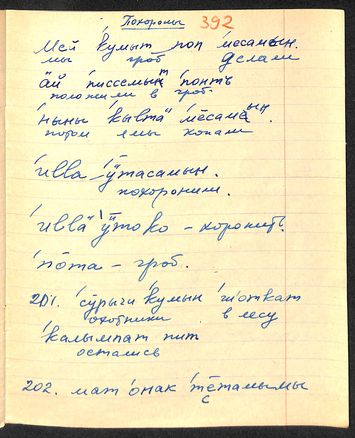 Похороны 392
Мей ќумыт поп ме́самын.
мы гроб делали
а̄й ́писсемыт ́понтъ
положили в гроб
́ныны ́кывта ́ме̄самын.
потом ямы копали
́илла ӱ̄тасамын.
похоронили.
́илла ӱ̄тоқо – хоронить.
́по̄та – гроб.
201. ́сӯрычи ́кумын ́шоткат
охотники в лесу
́калымпат пит
остались
202. мат ́онак ́те̄тамымы